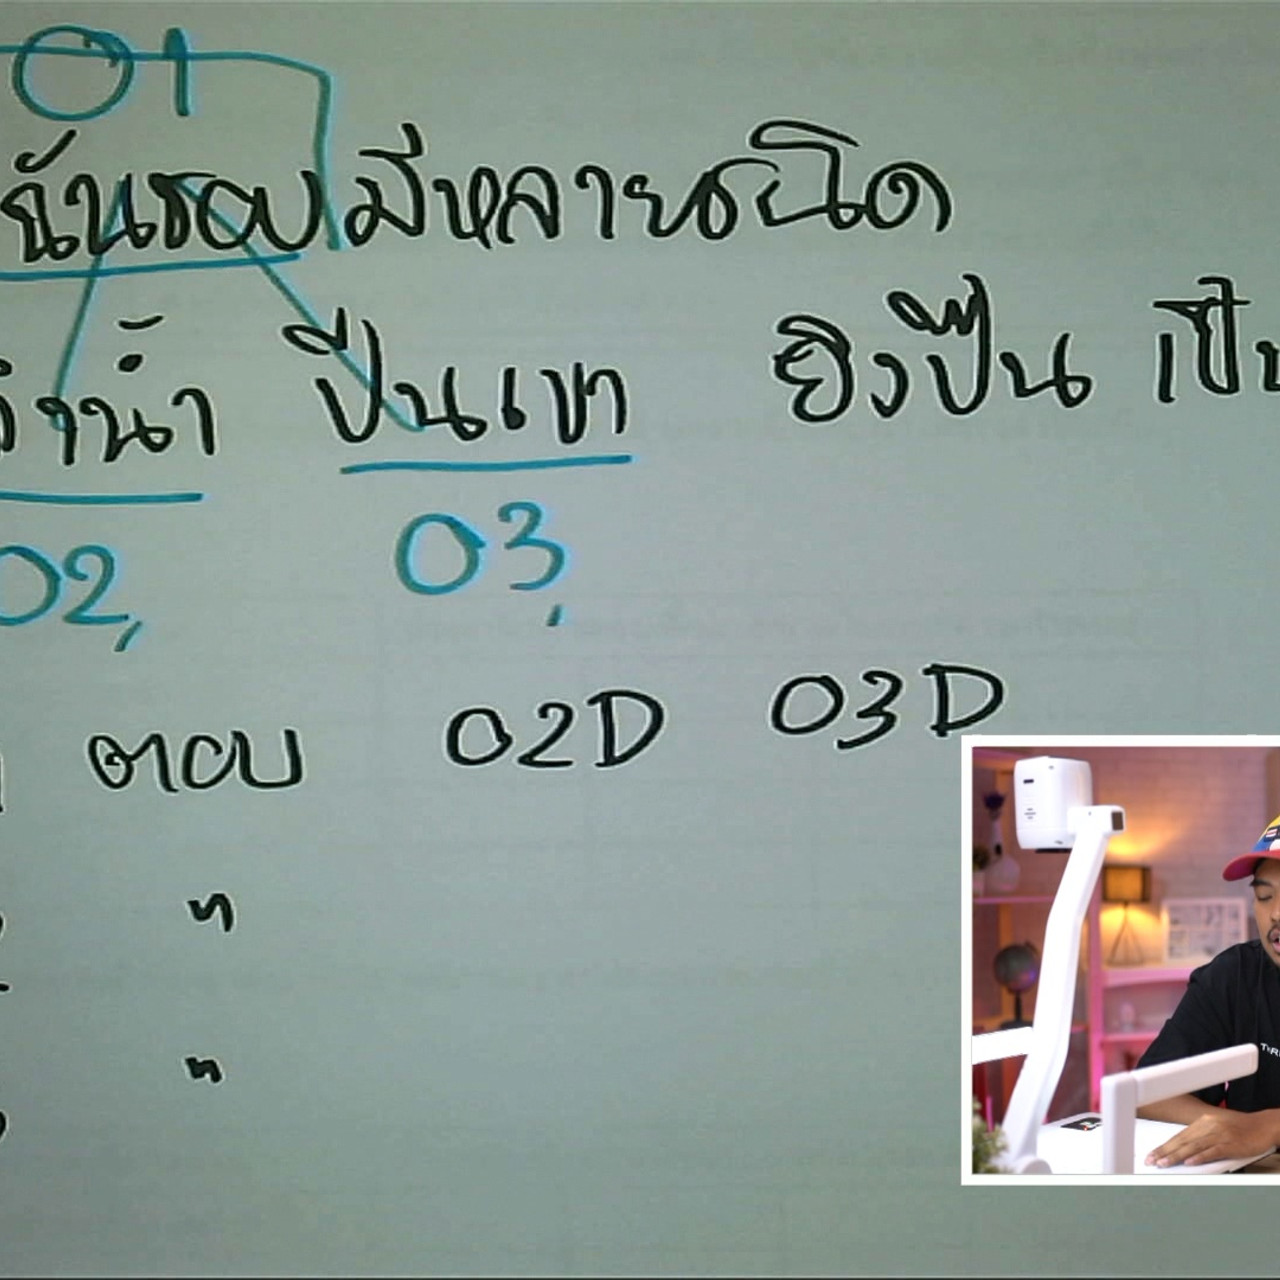 01
ฉันชอบมีหลายชนิด
น้ำ ปีนเขา ยิงปืน
02, 03,
ตอบ 02D 03D
"
"